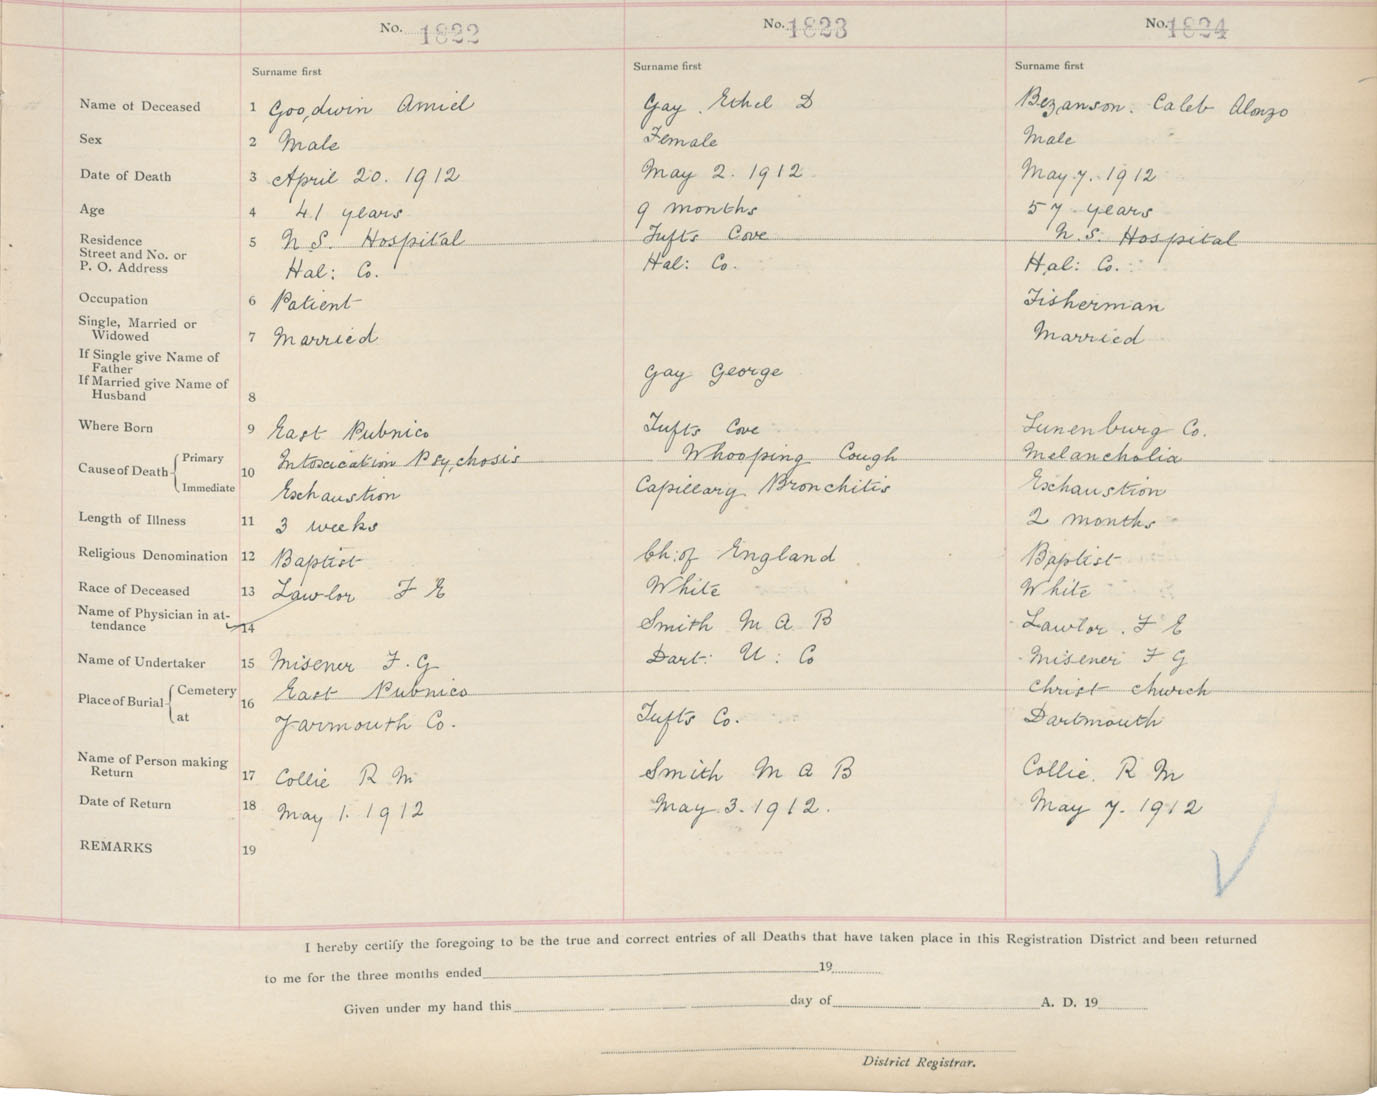 No. 1822 No. 1823 No. 1824
Surname first Surname first Surname first
Name of Deceased 1 Goodwin Amiel Gay. Ethel D Bezanson. Caleb Alonzo
Sex 2 Male Female Male
Date of Death 3 April 20. 1912 May 2. 1912 May 7. 1912
Age 4 41 years 9 months 57 years
Residence 5 N. S. Hospital Tufts Cove N. S. Hospital
Street and No. or
P. O. Address Hal: Co. Hal: Co. Hal: Co.
Occupation 6 Patient Fisherman
Single, Married or
Widowed 7 Married Married
If Single give Name of
Father Gay George
If Married give Name of
Husband 8
Where Born 9 East Pubnico Tufts Cove Lunenburg Co.
Cause of Death Primary 10 Intoxication Psychosis Whooping Cough Melancholia
Immediate Exhaustion Capillary Bronchitis Exhaustion
Length of Illness 11 3 weeks 2 months
Religious Denomination 12 Baptist Ch: of England Baptist
Race of Deceased 13 Lawlor F E White White
Name of Physician in at-
tendance 14 Smith M A B Lawlor. F E
Name of Undertaker 15 Misener F. G Dart: U: Co Misener F G
Place of Burial Cemetery 16 East Pubnico Christ Church
at Yarmouth Co. Tufts Co. Dartmouth
Name of Person making
Return 17 Collie R M Smith M A B Collie. R M
Date of Return 18 May 1. 1912 May 3. 1912. May 7. 1912
REMARKS 19
I hereby certify the foregoing to be the true and correct entries of all Deaths that have taken place in this Registration District and been returned
to me for the three months ended 19
Given under my hand this day of A. D. 19
District Registrar.